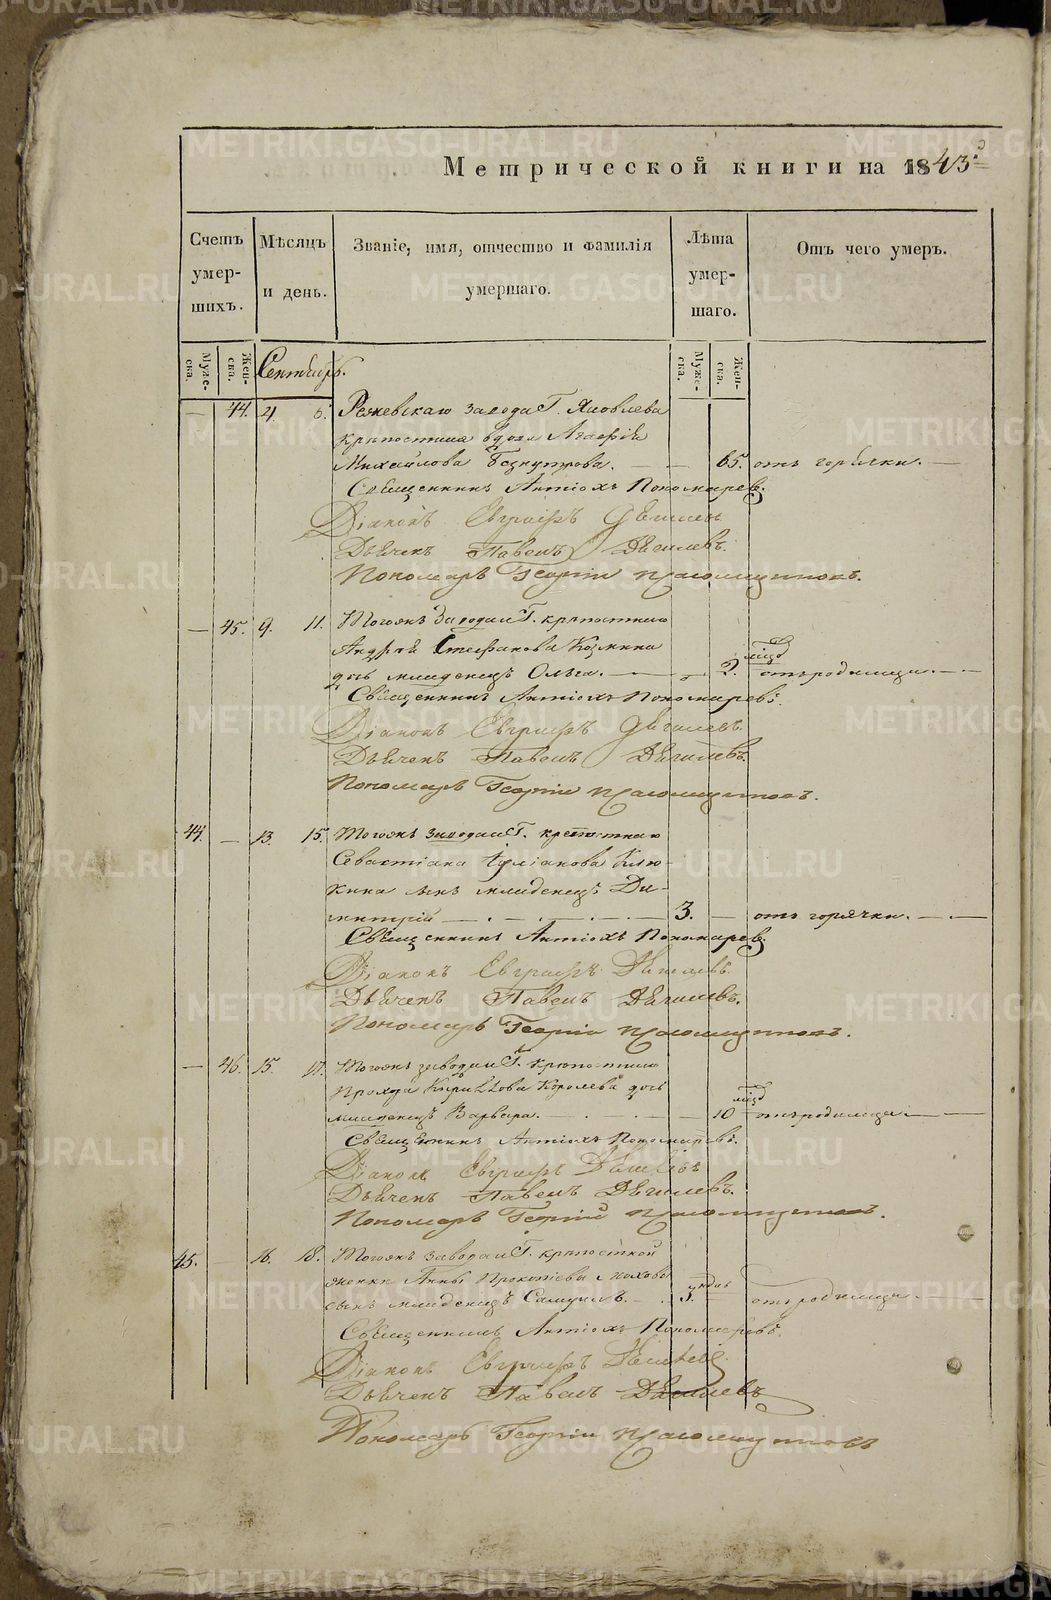 Метрической книги на 1843 д
Счетъ умер-шихъ.
Мѣсяцъ и день.
Званіе, имя, отчество и фамилія умершаго.
Лѣта умер-шаго.
Отъ чего умеръ.
Муже-ска.
Жен-ска.
Муже-ска.
Жен-ска.
Сентябрь.
— 44. 4. 6. Режевскаго завода Г. Яковлева
крѣпостная вдова Агафія
Михайлова — — 65. отъ горячки. —
Священникъ Антіохъ Пономаревъ.
Діаконъ Евграфъ Дягилевъ
Дьячекъ Павелъ Дягилевъ.
Пономарь Георгій
— 45. 9. 11. Тогожъ Завода и Г. крѣпостнаго
Андрея Стефанова Козмина
дочь младенецъ Ольга. — — 2. мѣсяц отъ родимца. —
Священникъ Антіохъ Пономаревъ.
Діаконъ Евграфъ Дягилевъ.
Дьячекъ Павелъ Дягилевъ.
Пономарь Георгій
44. — 13. 15. Тогожъ завода и Г. крепостнаго
Севастіана Клю-
кина сынъ младенецъ Ди-
митрій — 3. — отъ горячки. —
Священникъ Антіохъ Пономаревъ.
Діаконъ Евграфъ Дягилевъ.
Дьячекъ Павелъ Дягилевъ.
Пономарь Георгій
— 46. 15. 17. Тогожъ завода и Г. крѣпостнаго
Прохора Кирилова Королева дочь
младенецъ Варвара. — — 10 мѣсяц отъ родимца —
Священникъ Антіохъ Пономаревъ.
Діаконъ Евграфъ Дягилевъ
Дьячекъ Павелъ Дягилевъ.
Пономарь Георгій
45. — 16. 18. Тогожъ завода и Г. крѣпостной
женки Анны Прокопьевой
сынъ младенецъ Самуилъ. — 3. — отъ родимца. —
Священникъ Антіохъ Пономаревъ.
Діаконъ Евграфъ Дягилевъ
Дьячекъ Павелъ Дягилевъ
Пономарь Георгій
METRIKI.GASO-URAL.RU